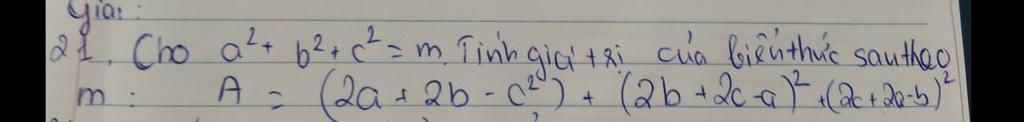 Giải:
21. Cho a² + b² + c² = m. Tính giá trị của biểu thức sau theo
m : A = (2a + 2b - c²) + (2b + 2c - a)² + (2c + 2a - b)²